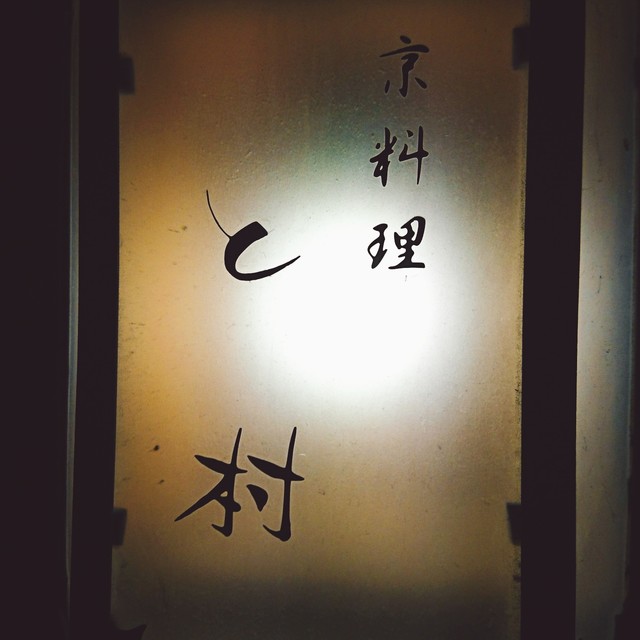 京料理
と村